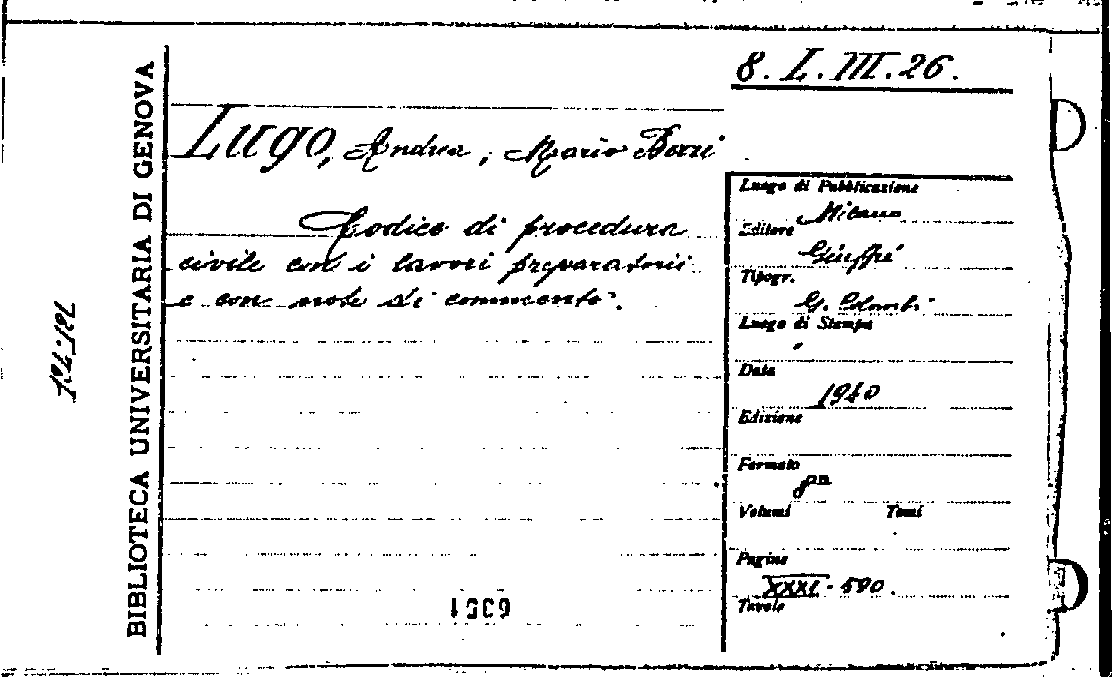 8. L. III. 26.
BIBLIOTECA UNIVERSITARIA DI GENOVA
Lugo, Andrea, Mario Berri
Codice di procedura
civile con i lavori preparatorii
e con note di commento.
Luogo di Pubblicazione
Milano
Editore
Giuffré
Tipogr.
G. Colombi
Luogo di Stampa
"
Data
1940
Edizione
Formato
8º
Volumi Tomi
Pagine
XXXI - 590.
Tavole